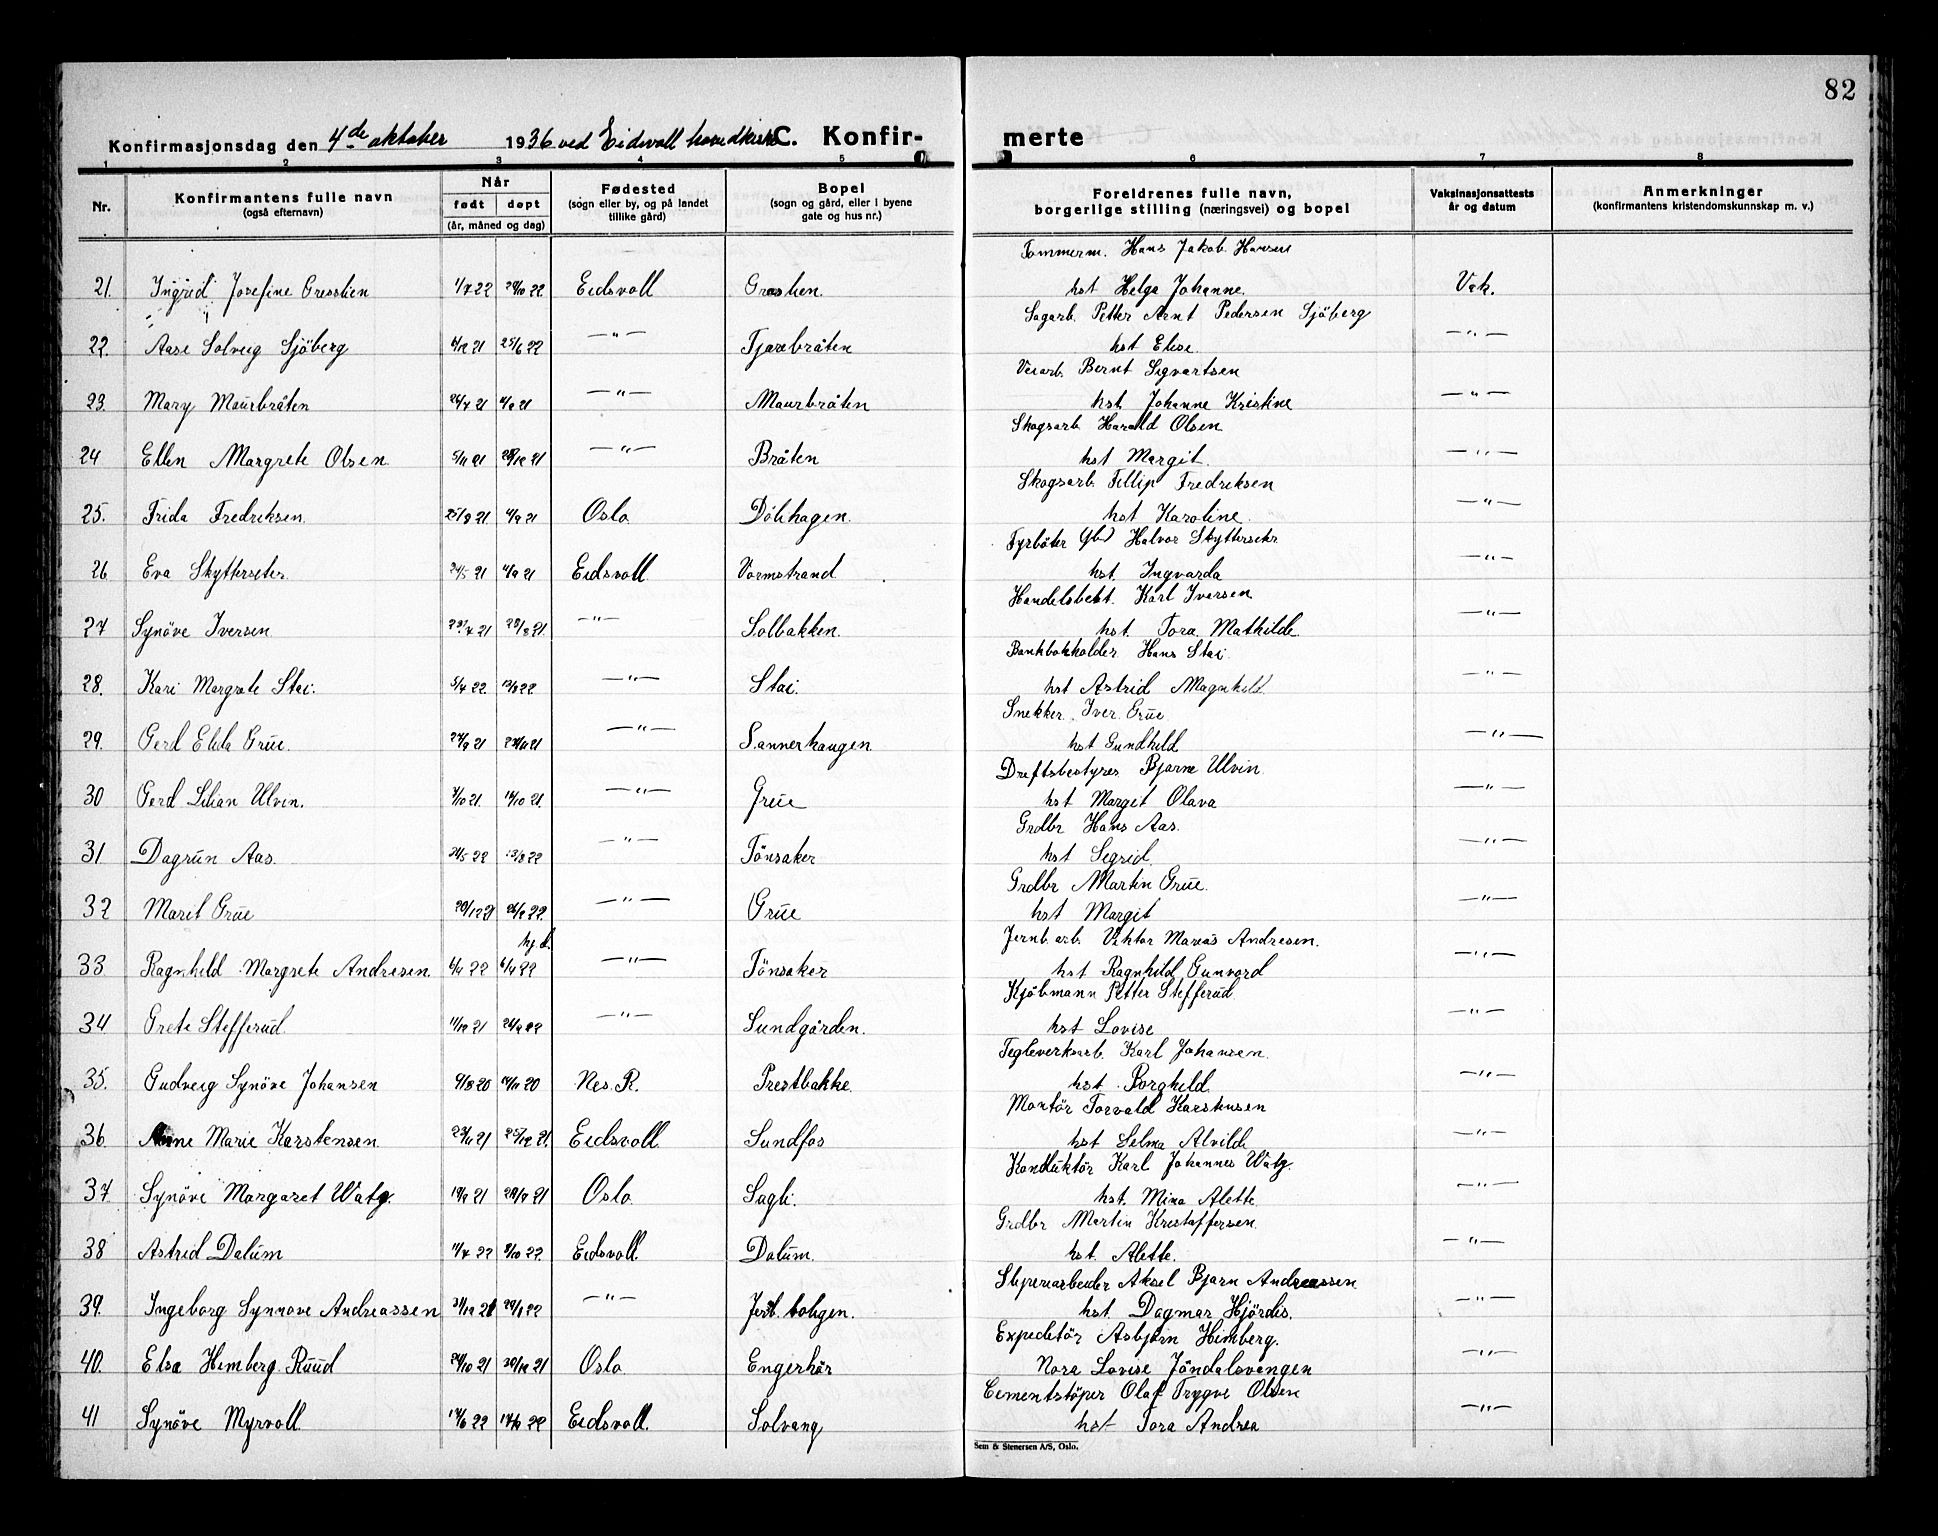 82
Konfirmasjonsdag den 4de oktober 1936 ved Eidsvoll hovedkirke C. Konfir- merte
1 2 3 4 5 6 7 8
Nr. Konfirmantens fulle navn (også efternavn) Når født døpt (år, måned og dag) Fødested (sogn eller by, og på landet tillike gård) Bopel (sogn og gård, eller i byene gate og hus nr.) Foreldrenes fulle navn, borgerlige stilling (næringsvei) og bopel Vaksinasjonsattests år og datum Anmerkninger (konfirmantens kristendomskunnskap m. v.)
Tommerm. Hans Jakob Hansen
21. Ingrid Josefine Gresslien 1/7 22 29/10 22 Eidsvoll Greslien. hst Helga Johanne. Vak.
Sagarb. Petter Arnt Pedersen Sjöberg
22. Aase Solveig Sjöberg 6/12 21 25/6 22 —"— Tjærebråten hst Elise. —"—
Veiarb. Bernt Sigvartsen
23. Mary Maurbråten 24/7 21 4/9 21 —"— Maurbråten hst. Johanne Kristine —"—
Skogsarb. Harald Olsen
24 Ellen Margrete Olsen 5/11 21 28/12 21 —"— Bråten hst Margit. —"—
Skogsarb. Fillip Fredriksen
25. Frida Fredriksen. 25/8 21 4/9 21 Oslo Dölihagen. hst Karoline. —"—
Fyrböter Halvor Skytterseter
26. Eva Skytterseter 24/5 21 4/9 21 Eidsvoll Vormstrand hst. Ingvarda —"—
Handelsbest. Karl Iversen
27 Synöve Iversen 28/8 21 —"— Solbakken. hst. Tora Mathilde —"—
Bankbokholder Hans Stai.
28. Kari Margrete Stai. 5/4 22 13/8 22 —"— Stai. hst Astrid Magnhild —"—
Snekker. Iver Grue
29. Gerd Elida Grue. 24/9 21 27/11 21 —"— Sannerhaugen hst Gundhild —"—
Driftsbestyrer Bjarne Ulvin
30 Gerd Lilian Ulvin. 7/10 21. 14/10 21. —"— Grue hst Margit Olava —"—
Grdbr Hans Aas.
31 Dagrun Aas. 24/5 22 13/8 22 —"— Tönsaker hst Sigrid. —"—
Grdbr Martin Grue.
32 Marit Grue 20/12 21 26/2 22. —"— Grue hst Margit —"—
hj.d. Jernb. arb. Viktor Marius Andresen.
33 Ragnhild Margrete Andresen 6/4 22 6/4 22 —"— Tönsaker hst Ragnhild Gunvord —"—
Kjöbmann Petter Stefferud.
34 Grete Stefferud 11/12 21 26/2 22 —"— Sundgården. hst Lovise —"—
Tegleverksarb. Karl Johansen.
35. Gudveig Synöve Johansen 9/8 20 14/11 20 Nes. R. Prestbakke. hst. Borghild. —"—
Montör Torvald Karstensen
36 Anne Marie Karstensen 23/11 21 25/12 21. Eidsvoll Sundfos hst. Selma Alvilde —"—
Konduktör Karl Johannes Waty.
37 Synöve Margaret Waty. Oslo Sagli. hst. Mina Alette —"—
Grdbr Martin Kristoffersen.
38 Astrid Dalum 11/7 22 8/10 22 Eidsvoll Dalum. hst. Alette. —"—
Sliperiarbeider Aksel Bjarn Andreassen
39. Ingeborg Synnove Andreassen 31/12 21 29/1 22 —"— Jerb. boligen. hst. Dagmar Hjördis. —"—
Expeditör Asbjörn Himberg.
40. Elsa Himberg Ruud 24/10 21 30/12 21 Oslo Engerkär Nora Lovise Jöndalsvangen —"—
Cementstöper Olaf Trygve Olsen
41 Synöve Myrvoll 17/6 22 17/9 22 Eidsvoll. Solvang hst Tora Andrea —"—
Sem & Stenersen A/S, Oslo.